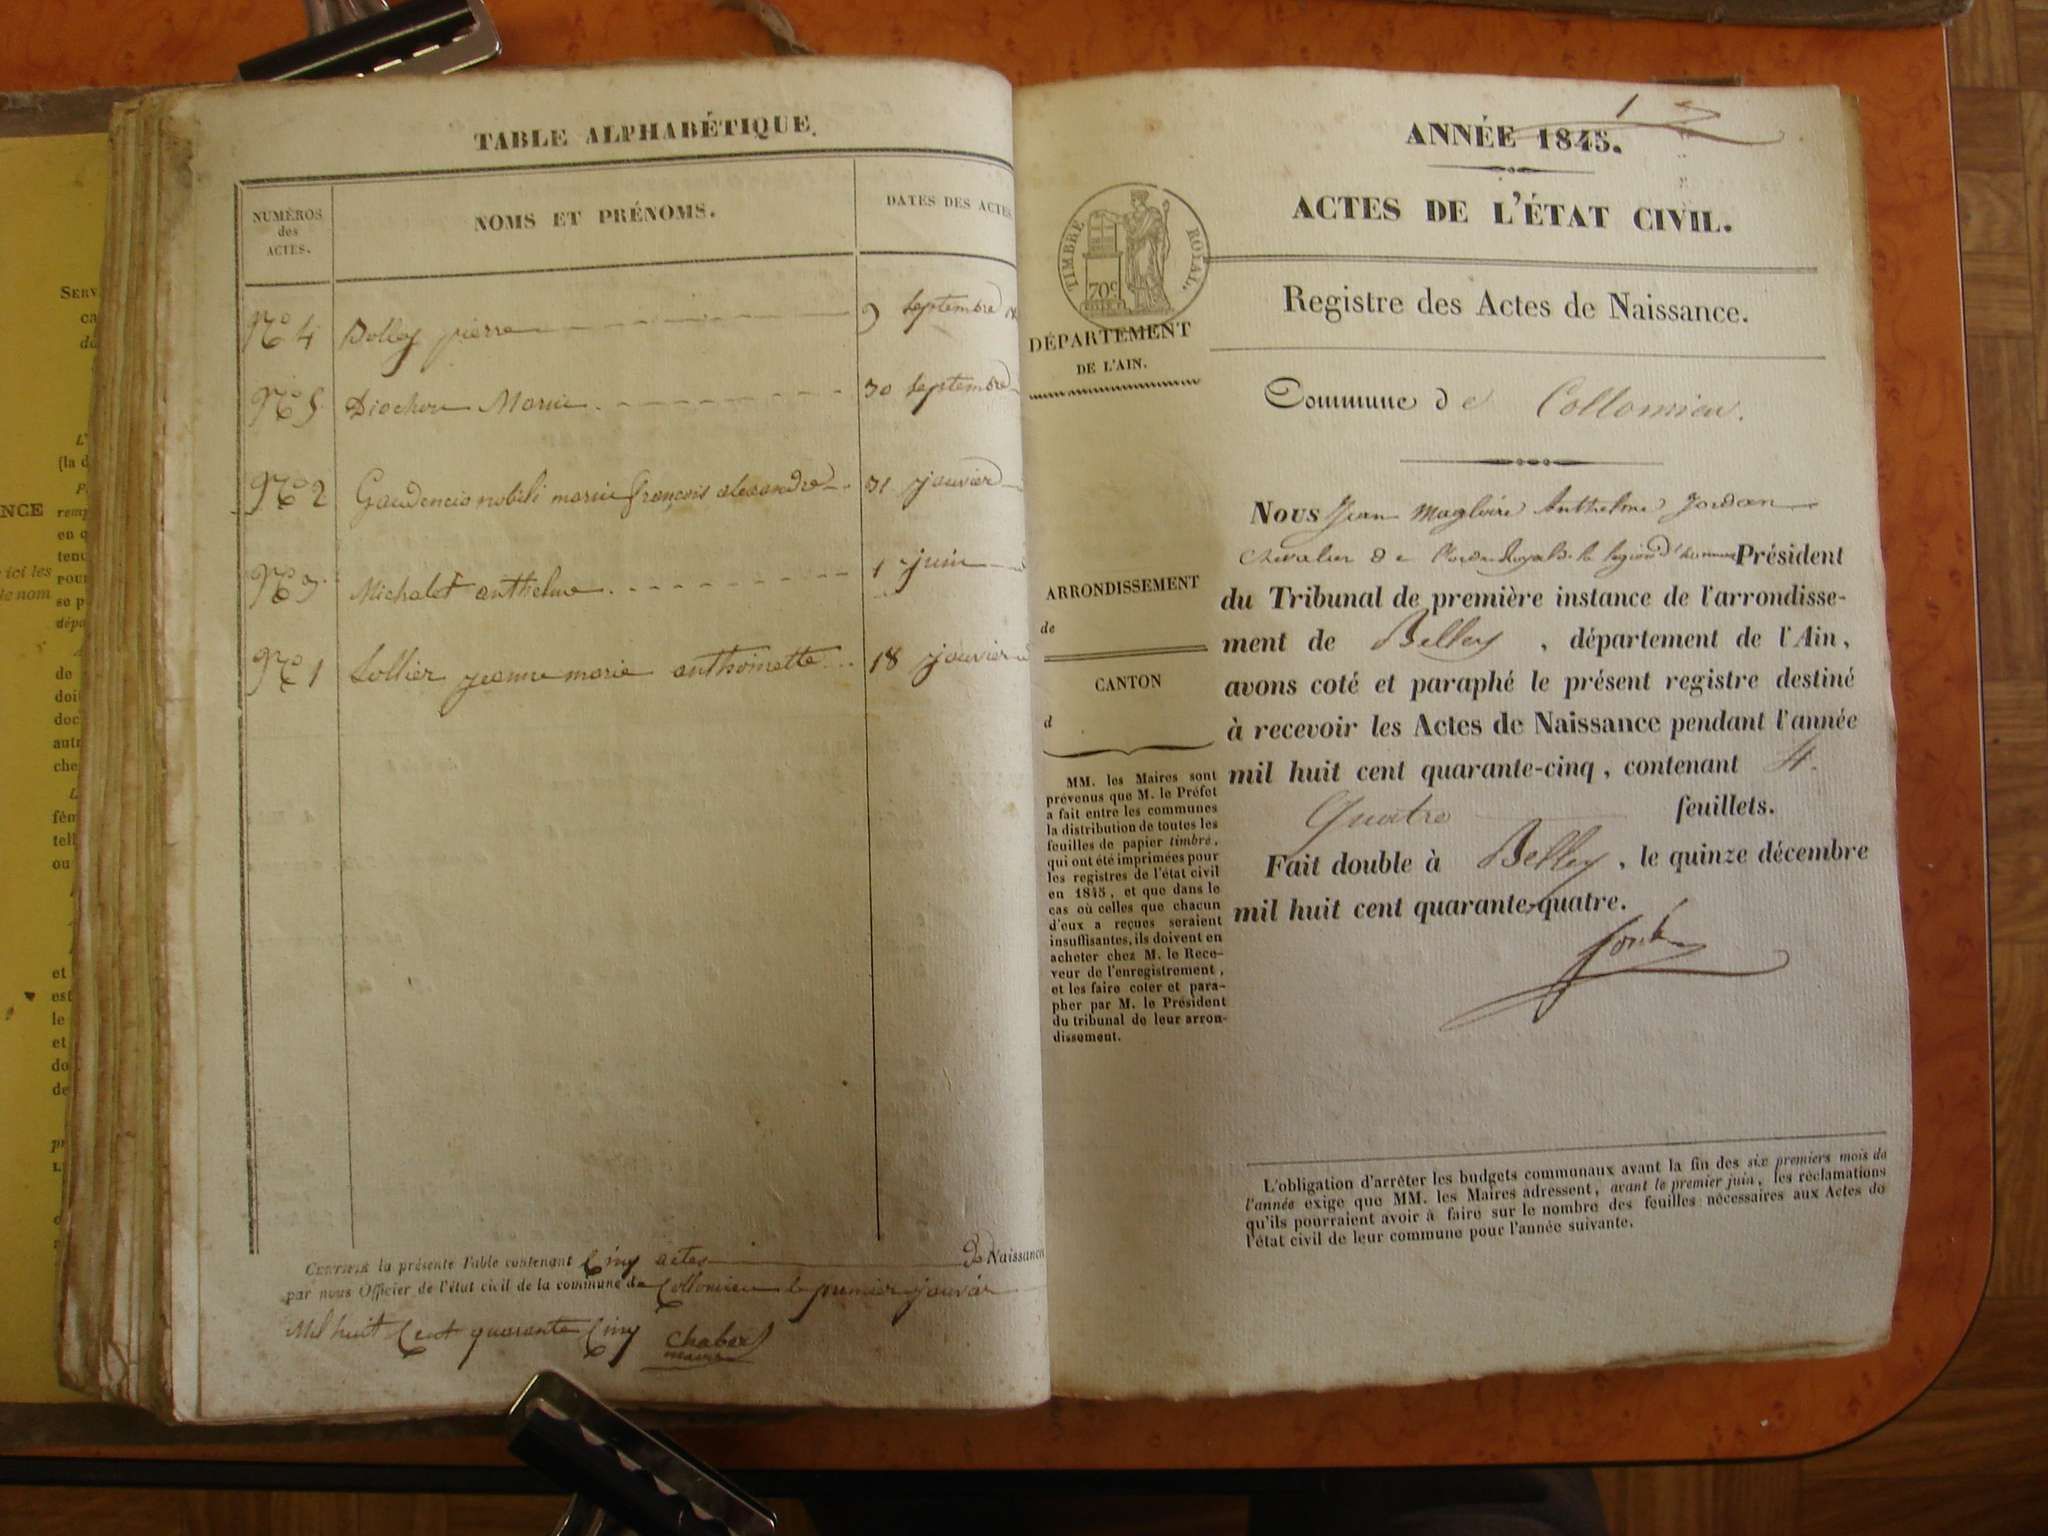 TABLE ALPHABÉTIQUE.
NUMÉROS
des
ACTES.
NOMS ET PRÉNOMS.
DATES DES ACTES
N° 4 Dolley pierre 9 Septembre
N° 5 Diochon Marie 30 Septembre
N° 2 Gaudencio nobili marie françois alexandre 31 janvier
N° 3 Michalet anthelme 1 juin
N° 1 Sollier jeanne marie anthoinette 18 janvier
CERTIFIÉ la présente Table contenant Cinq actes de Naissance
par nous Officier de l'état civil de la commune de Collomieu le premier janvier
Mil huit Cent quarante Cinq Chabert
maire
1
ANNÉE 1845.
ACTES DE L'ÉTAT CIVIL.
TIMBRE ROYAL.
70c
Registre des Actes de Naissance.
DÉPARTEMENT
DE L'AIN.
Commune de Collomieu.
ARRONDISSEMENT
de
CANTON
d
MM. les Maires sont
prévenus que M. le Préfet
a fait entre les communes
la distribution de toutes les
feuilles de papier timbré,
qui ont été imprimées pour
les registres de l'état civil
en 1845, et que dans le
cas où celles que chacun
d'eux a reçues seraient
insuffisantes, ils doivent en
acheter chez M. le Rece-
veur de l'enregistrement,
et les faire coter et para-
pher par M. le Président
du tribunal de leur arron-
dissement.
Nous Jean Magloire Anthelme Jordan
Chevalier de l'ordre Royal de la légion d'honneur Président
du Tribunal de première instance de l'arrondisse-
ment de Belley, département de l'Ain,
avons coté et paraphé le présent registre destiné
à recevoir les Actes de Naissance pendant l'année
mil huit cent quarante-cinq, contenant 4.
Quatre feuillets.
Fait double à Belley, le quinze décembre
mil huit cent quarante-quatre.
L'obligation d'arrêter les budgets communaux avant la fin des six premiers mois de
l'année exige que MM. les Maires adressent, avant le premier juin, les réclamations
qu'ils pourraient avoir à faire sur le nombre des feuilles nécessaires aux Actes de
l'état civil de leur commune pour l'année suivante.